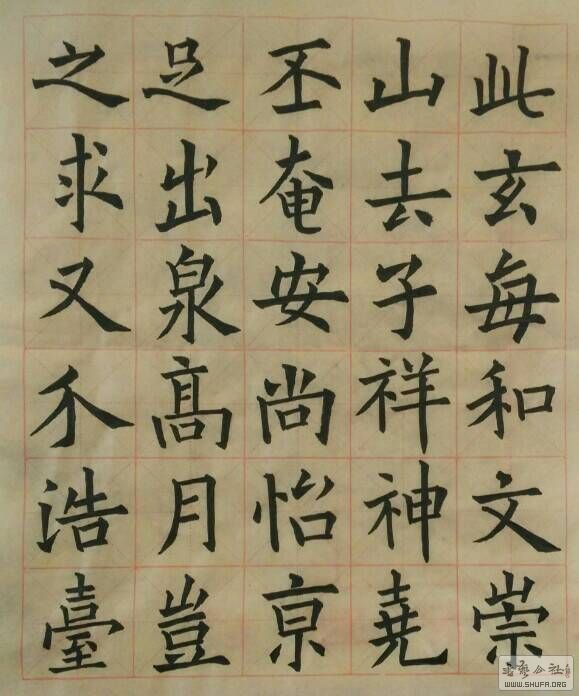 此玄每和文崇
山去子祥神堯
丕奄安尚怡亰
足出泉髙月豈
之求又介浩臺
书艺公社
WWW.SHUFA.ORG